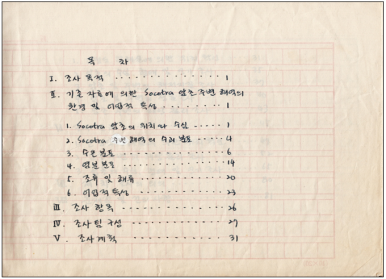 목 차
I. 조사 목적 ............. 1
II. 기존 자료에 의한 Socotra 암초 주변 해역의
환경 및 어업적 특성 ............ 1
1. Socotra 암초의 위치와 수심 ..... 1
2. Socotra 주변 해역의 수리 분포 ..... 4
3. 수온 분포 ............ 6
4. 염분 분포 ............ 14
5. 조류 및 해류 .......... 20
6. 어업적 특성 ........... 23
III. 조사 항목 ............ 26
IV. 조사 팀 구성 ........... 27
V. 조사 계획 ............. 31